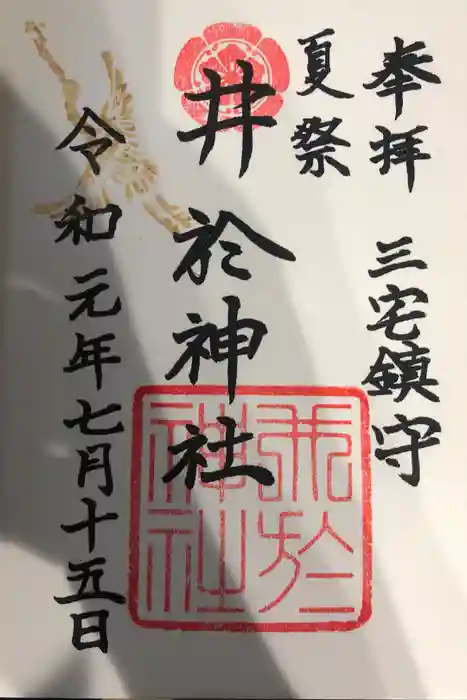 奉拝 三宅鎮守
夏祭
井於神社
令和元年七月十五日
井於神社